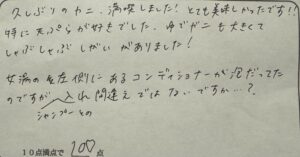 久しぶりのカニ、満喫しました！とても美味しかったです！！
特に天ぷらが好きでした。ゆでガニも大きくて
しゃぶしゃぶしがいがありました！
女湯の左側にあるコンディショナーが泡だってた
のですが 入れ間違えではないですか…？
シャンプーとの
10点満点で 100 点